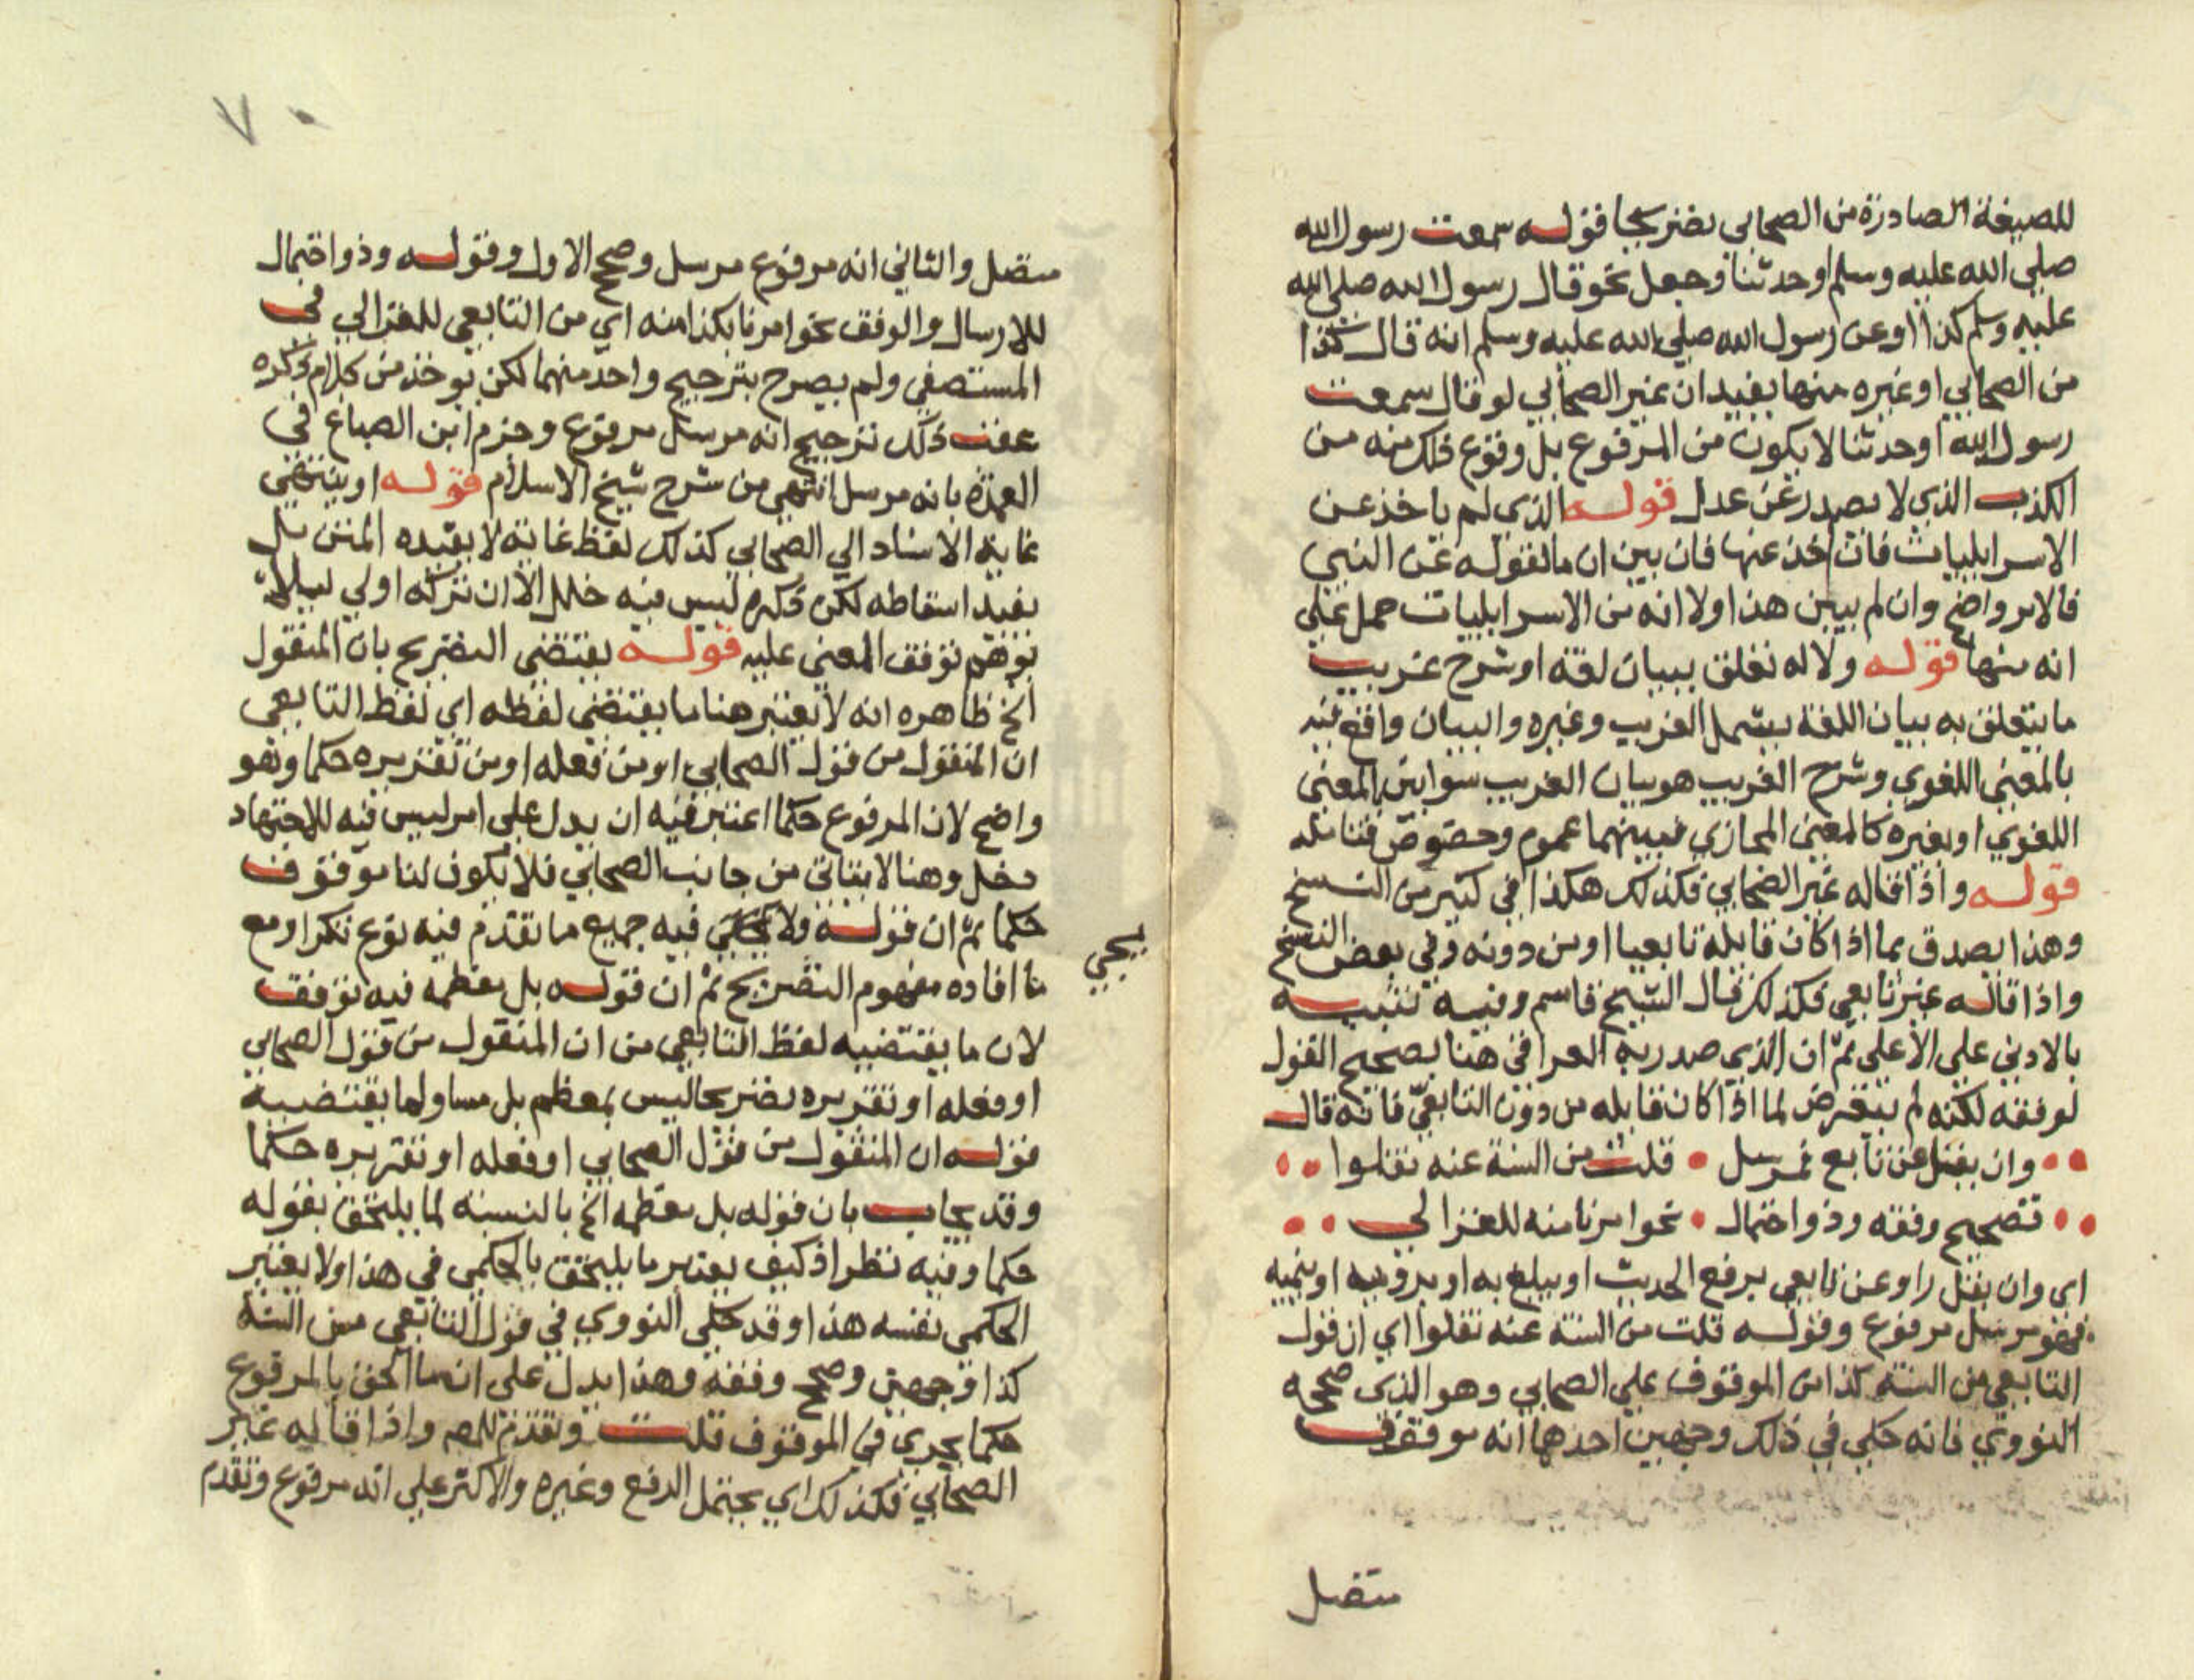 للصيغة الصادرة من الصحابي تصريحا فقوله سمعت رسول الله
صلى الله عليه وسلم او حدثنا وجعل نحو قال رسول الله صلى الله
عليه وسلم كذا او عن رسول الله صلى الله عليه وسلم انه قال كذا
من الصحابي او غيره منها يفيد ان غير الصحابي لو قال سمعت
رسول الله او حدثنا لا يكون من المرفوع بل وقوع ذلك منه من
الكذب الذي لا يصدر عن عدل قوله الذي لم ياخذ عن
الاسرايليات فان اخذ عنها فان بين ان ما نقوله عن النبي
فالامر واضح وان لم يبين هذا ولا انه من الاسرايليات حمل على
انه منها قوله ولا له تعلق ببيان لغة او شرح غريب
ما يتعلق به بيان اللغة يشمل الغريب وغيره والبيان واقع فيه
بالمعنى اللغوي وشرح الغريب هو بيان الغريب سوا بين المعنى
اللغوي او بغيره كالمعنى المجازي فبينهما عموم وخصوص فتامله
قوله واذا قاله غير الصحابي فكذلك هكذا في كثير من النسخ
وهذا يصدق بما اذا كان قايله تابعيا او من دونه وفي بعض النسخ
واذا قاله غير تابعي فكذلك قال الشيخ قاسم وفيه تنبيه
بالادنى على الاعلى ثم ان الذي صدر به العراقي هنا تصحيح القول
لوقفه لكنه لم يتعرض لما اذا كان قايله من دون التابعي فانه قال
وان يقل عن تابع فمرسل • قلت من السنة عنه نقلوا
تصحيح وقفه وذو احتمال • نحو امرنا منه للغزالي
اي وان يقل راو عن تابعي يرفع الحديث او يبلغ به او يرويه او ينميه
فهو مرسل مرفوع وقوله قلت من السنة عنه نقلوا اي ان قول
التابعي من السنة كذا من الموقوف على الصحابي وهو الذي صححه
النووي فانه حكي في ذلك وجهين احدهما انه موقوف
متصل
متصل والثاني انه مرفوع مرسل وصحح الاول وقوله وذو احتمال
للارسال والوقف نحو امرنا بكذا منه اي من التابعي للغزالي في
المستصفى ولم يصرح بترجيح واحد منهما لكن يوخذ من كلام ذكره
عقب ذلك ترجيح انه مرسل مرفوع وجزم ابن الصباغ في
العدة بانه مرسل انتهى من شرح شيخ الاسلام قوله او ينتهي
غاية الاسناد الي الصحابي كذلك لفظ غاية لا يفيده المتن بل
يفيد اسقاطه لكن ذكره ليس فيه خلل الا ان تركه اولي ليلا
يوهم توقف المعنى عليه قوله يقتضي التصريح بان المنقول
الخ ظاهره انه لا يعتبر هنا ما يقتضي لفظه اي لفظ التابعي
ان المنقول من قول الصحابي او من فعله او من تقريره حكما وهو
واضح لان المرفوع حكما اعتبر فيه ان يدل على امر ليس فيه للاجتهاد
مدخل وهنا لا يتاتى من جانب الصحابي فلا يكون لنا موقوف
حكما ثم ان قوله ولا يجي فيه جميع ما تقدم فيه نوع تكرار مع
يجي
ما افاده مفهوم التصريح ثم ان قوله بل معظمه فيه توقف
لان ما يقتضيه لفظ التابعي من ان المنقول من قول الصحابي
او فعله او تقريره تصريحا ليس بمعظم بل مساو لما يقتضيه
قوله ان المنقول من قول الصحابي او فعله او تقريره حكما
وقد يجاب بان قوله بل معظمه الخ بالنسبة لما يلتحق بقوله
حكما وفيه نظر اذ كيف يعتبر ما يلتحق بالحكمي في هذا ولا يعتبر
الحكمي نفسه هذا وقد حكي النووي في قول التابعي من السنة
كذا وجهين وصحح وقفه وهذا يدل على ان ما الحق بالمرفوع
حكما يجري في الموقوف قلت وتقدم للمص واذا قاله غير
الصحابي فكذلك اي يحتمل الرفع وغيره والاكثر على انه مرفوع وتقدم